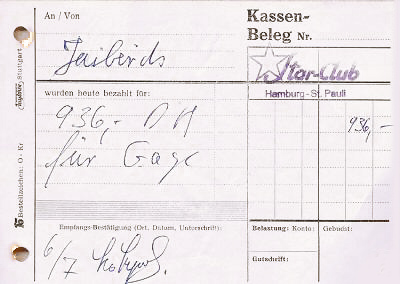 An / Von
Kassen-
Beleg Nr.
Jaibirds
Star-Club
Hamburg - St. Pauli
wurden heute bezahlt für:
936,- DM
936,-
für Gage
Empfangs-Bestätigung (Ort, Datum, Unterschrift):
6/7
Belastung: Konto:
Gebucht:
Gutschrift:
Stuttgart
Bestellzeichen: O - Kr